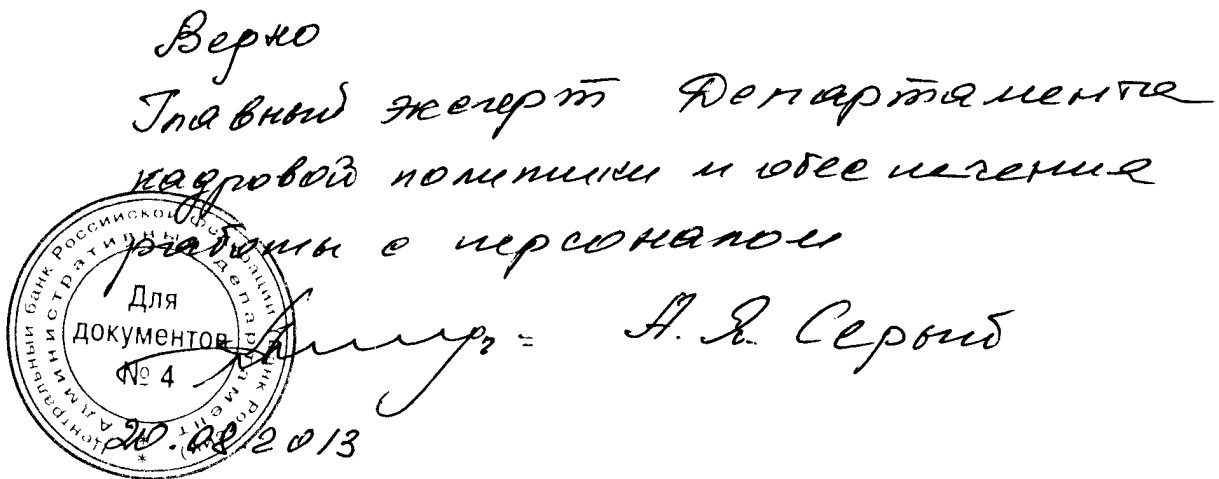 Верно
Главный эксперт Департамента
кадровой политики и обеспечения
работы с персоналом
А. Я. Серый
20.08.2013
Центральный банк Российской Федерации (Банк России)
Административный департамент
Для
документов
№ 4